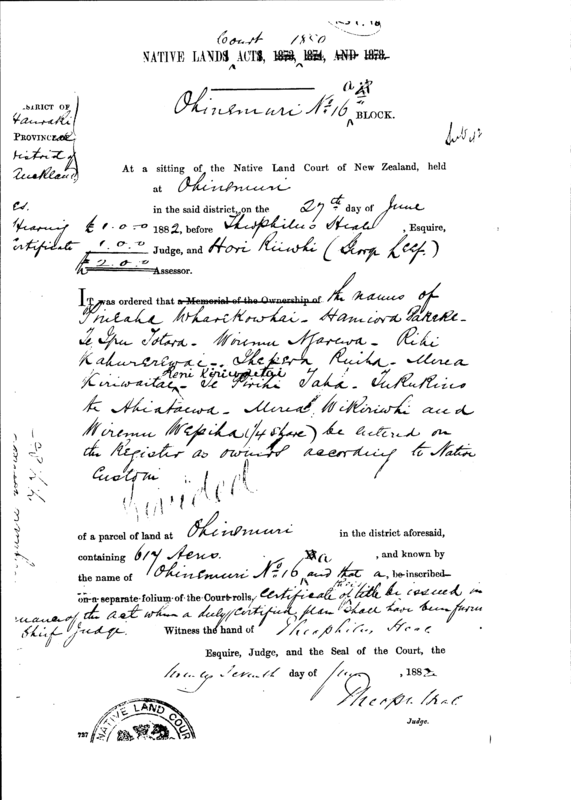 Court 1880
NATIVE LANDS ACTS, 1873, 1874, AND 1878.
Ohinemuri No. 16 a
BLOCK.
DISTRICT OF
Hauraki
PROVINCE
District of
Auckland
At a sitting of the Native Land Court of New Zealand, held
at Ohinemuri
in the said district, on the 27th day of June
1882, before Theophilus Heale, Esquire,
Judge, and Hori Riiwhi (George Leef)
Assessor.
Hearing £1.0.0
Certificate 1.0.0
£2.0.0
IT was ordered that a Memorial of the Ownership of the names of
Pineaha Wharekowhai - Hamiora
Te Ipu Totara - Wiremu - Rihi
- Mereа
Keni Kiriwaitai
Kiriwaitai - Te Pirihi Taha - Tukukino
te Ahiataewa - Mereа Wikiriwhi and
Wiremu Wepiha (1/4 share) be entered on
the Register as owners according to Native
Custom
of a parcel of land at Ohinemuri in the district aforesaid,
containing 617 Acres, and known by
the name of Ohinemuri No. 16 a and that a be inscribed
on a separate folium of the Court rolls, Certificate of title be issued in
of the act when a duly certified plan shall have been
Chief Judge.
Witness the hand of Theophilus Heale
Esquire, Judge, and the Seal of the Court, the
twenty seventh day of June, 1882
Theoph. Heale
Judge.
NATIVE LAND COUR
727